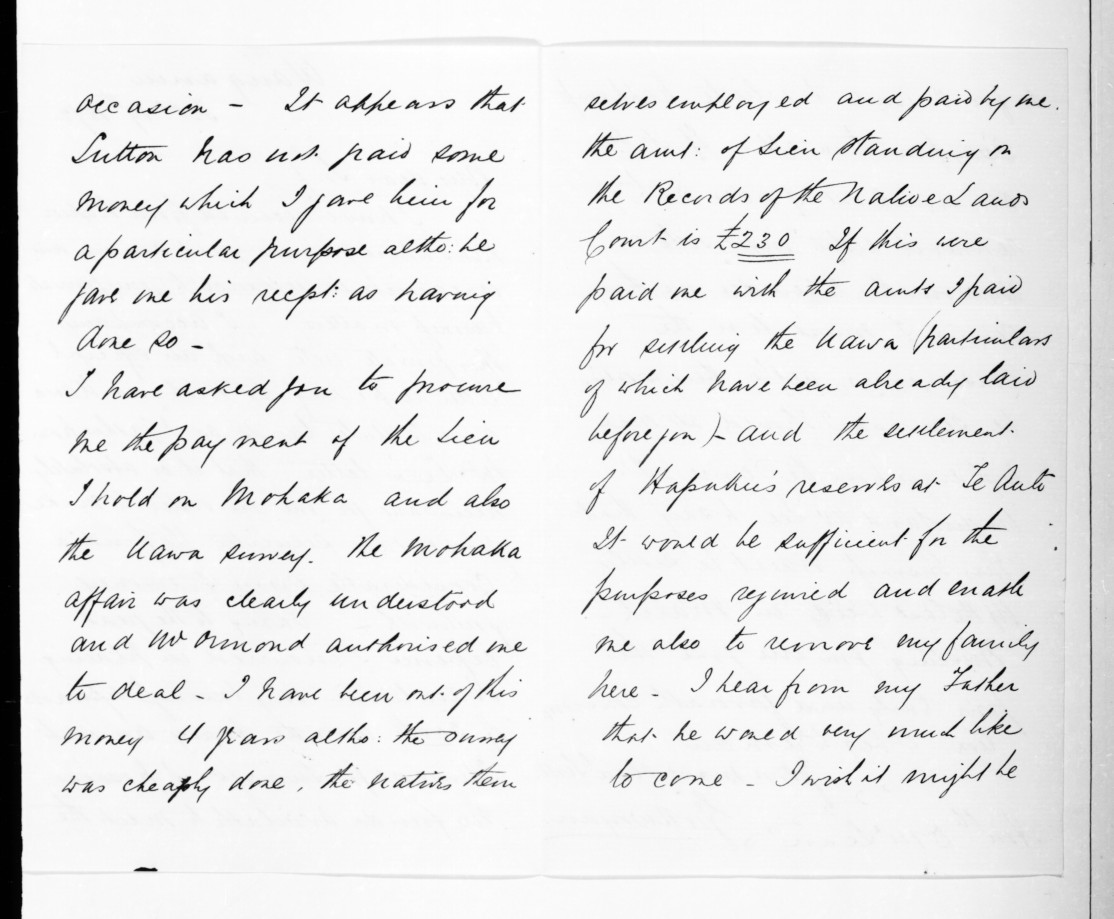 occasion - It appears that
Sutton has not paid some
money which I gave him for
a particular purpose altho: he
gave me his recpt: as having
done so -
I have asked you to procure
me the payment of the Lien
I hold on Mohaka and also
the Uawa survey. The Mohaka
affair was clearly understood
and Mr Ormond authorised me
to deal - I have been out of this
money 4 years altho: the survey
was cheaply done, the natives them
selves employed and paid by me.
the amt: of Lien standing on
the Records of the Native Lands
Court is £230 If this were
paid me with the amts I paid
for settling the Uawa (particulars
of which have been already laid
before you) - and the settlement
of Hapuku's reserves at Te Aute
It would be sufficient for the
purposes required and enable
me also to remove my family
here - I hear from my Father
that he would very much like
to come - I wish it might be